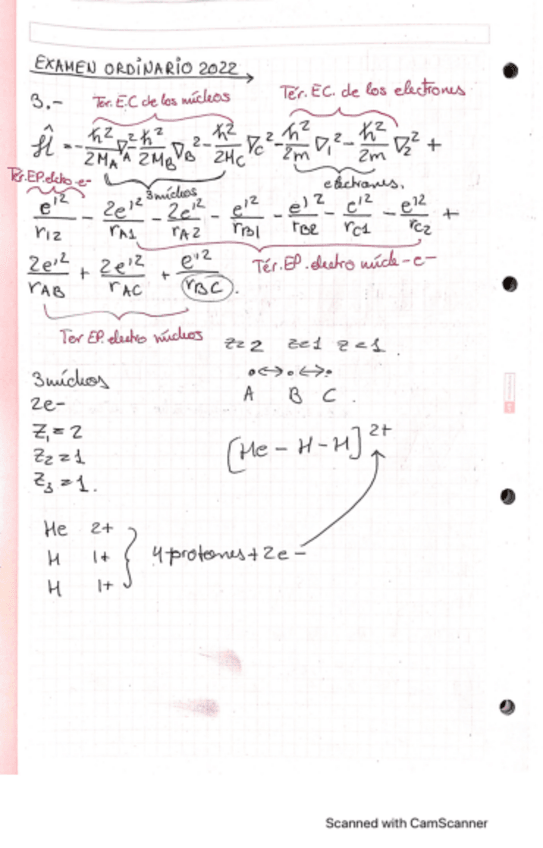 EXAMEN ORDINARIO 2022
3.- Tér. E.C de los núcleos Tér. EC. de los electrones
Ĥ = -ħ²/2M_A ∇_A² - ħ²/2M_B ∇_B² - ħ²/2M_C ∇_C² - ħ²/2m ∇₁² - ħ²/2m ∇₂² +
Tér.EP.electro e- 3 núcleos electrones.
e'²/r₁₂ - 2e'²/r_A1 - 2e'²/r_A2 - e'²/r_B1 - e'²/r_B2 - e'²/r_C1 - e'²/r_C2 +
2e'²/r_AB + 2e'²/r_AC + e'²/r_BC. Tér.EP.electro núcle-e-
Ter EP. electro núcleos
z=2 z=1 z=1.
3 núcleos
A B C.
2e-
Z₁=2
[He - H - H]²⁺
Z₂=1
Z₃=1.
He 2+
H 1+ } 4 protones + 2e-
H 1+
Scanned with CamScanner